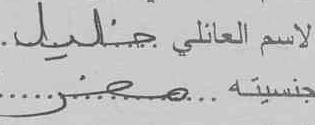 لاسم العائلي خليل
جنسيته مصر